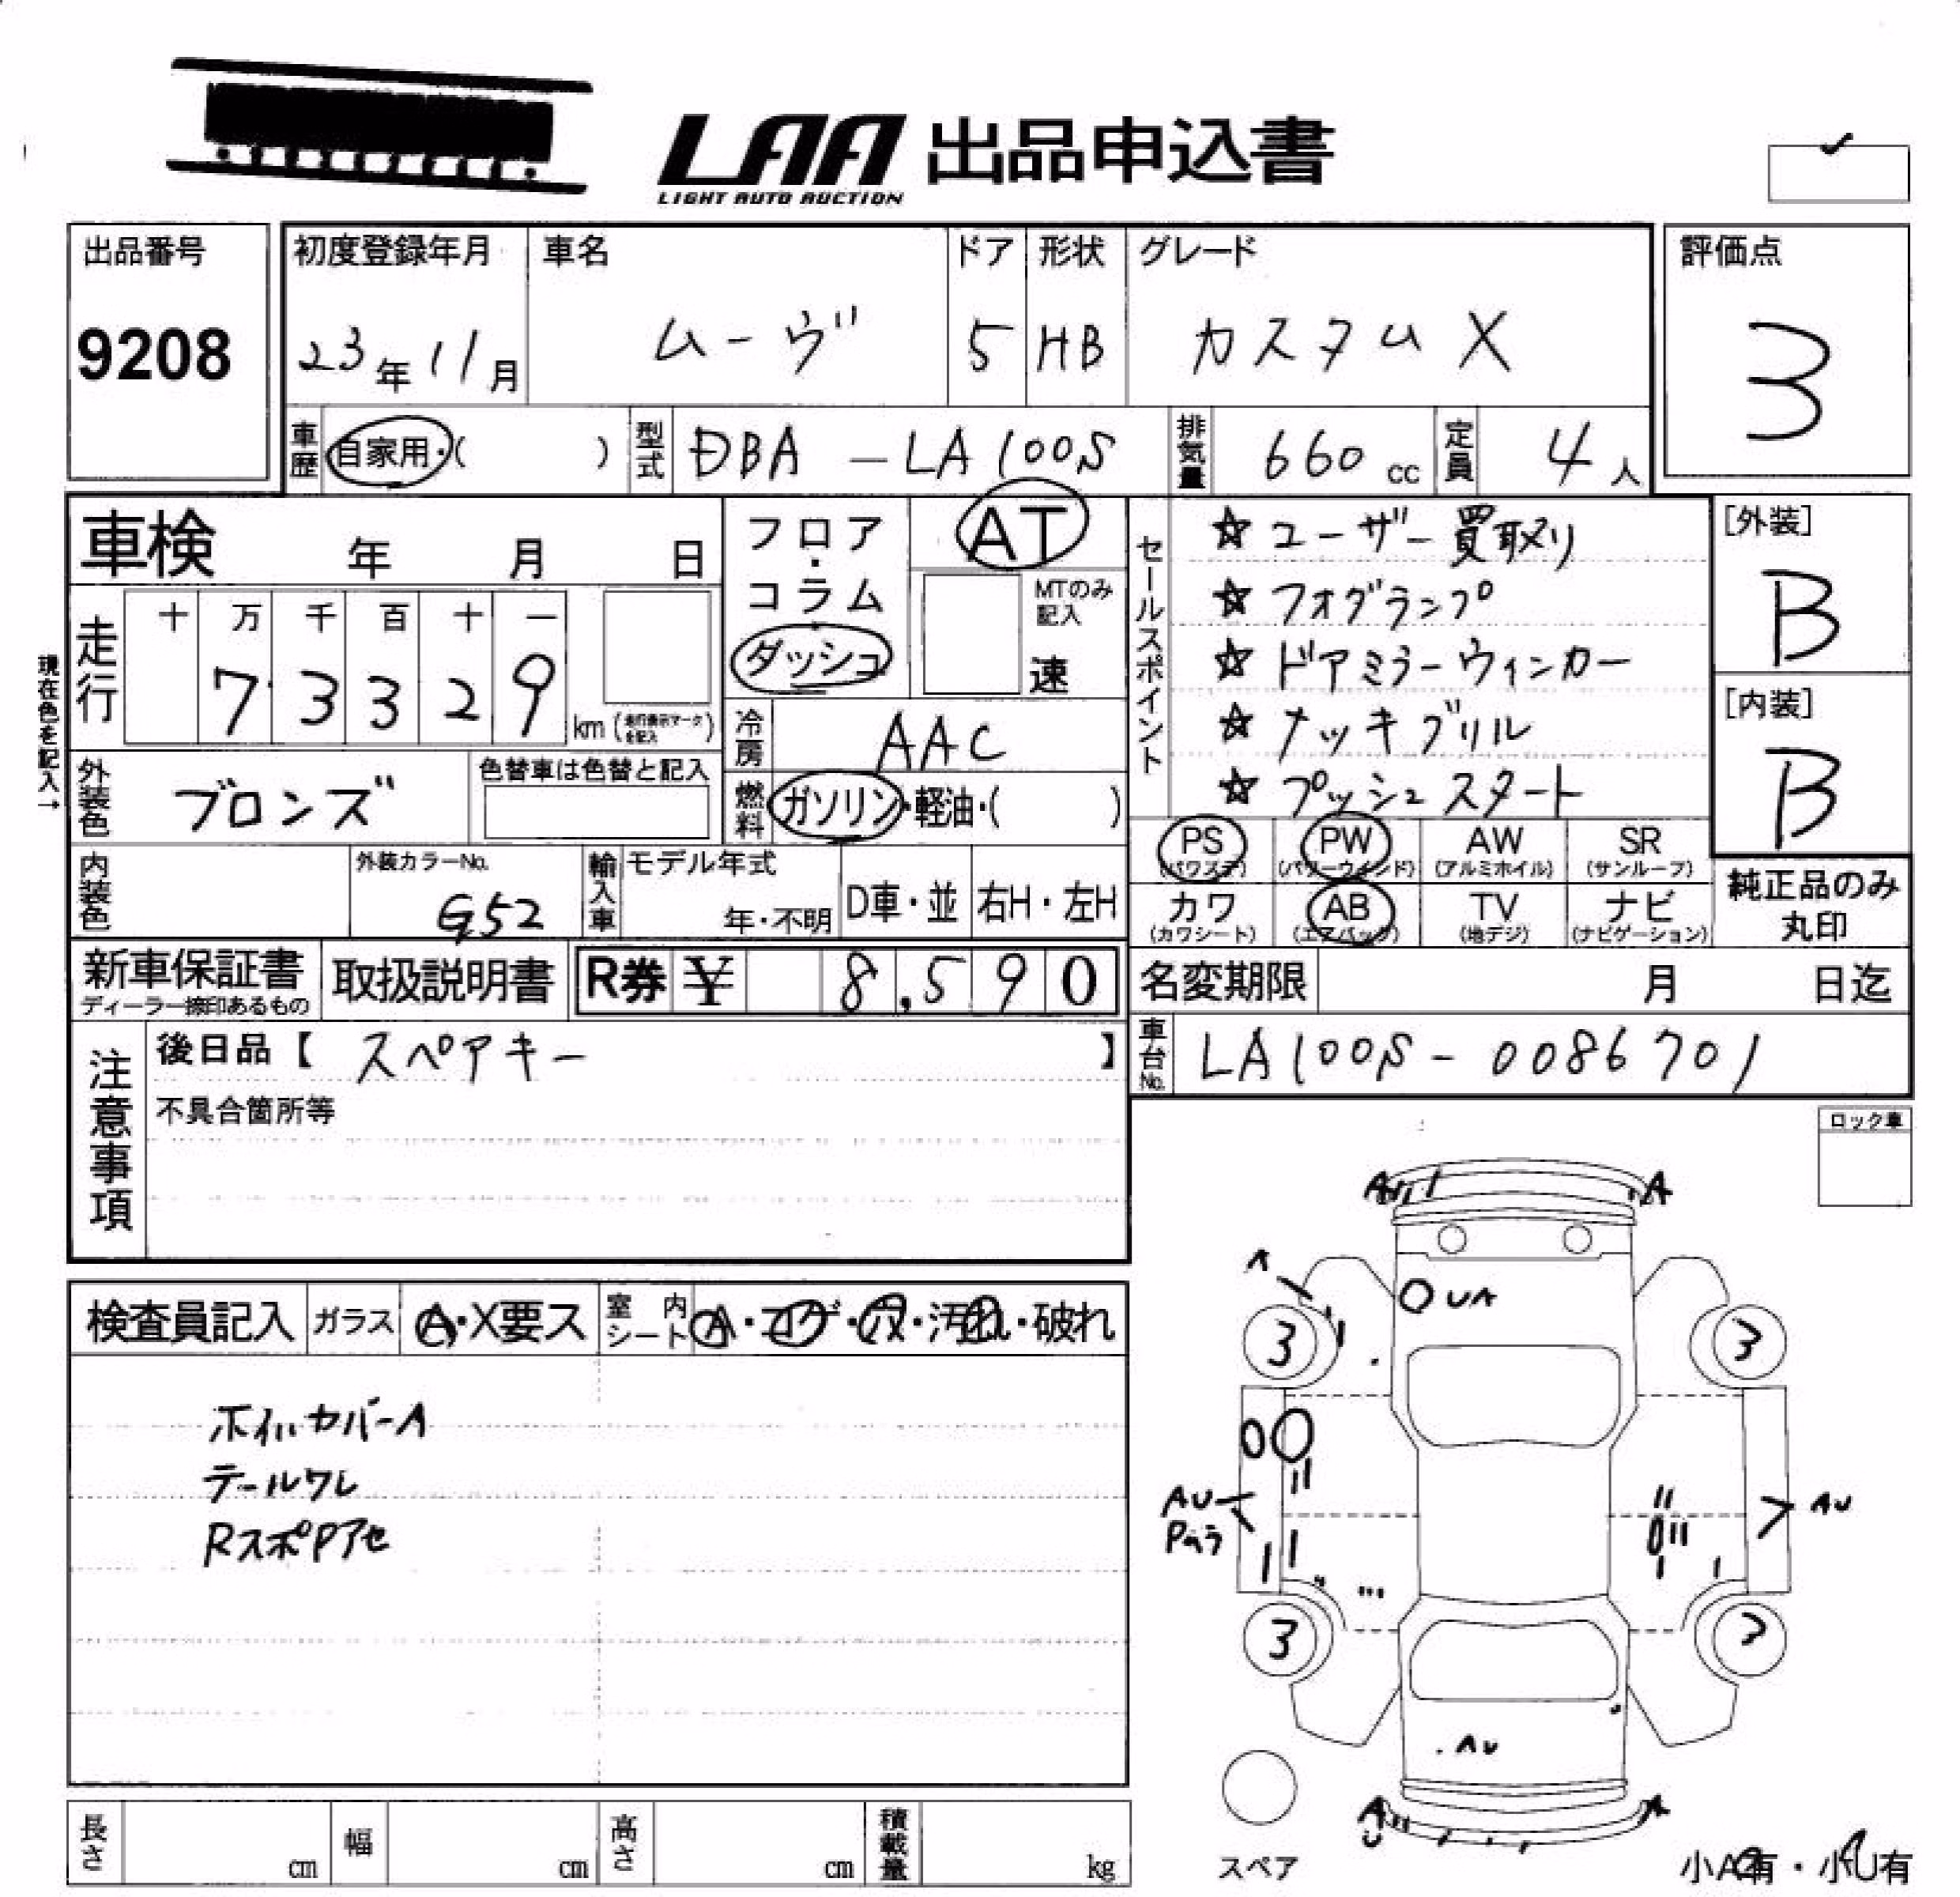 LAA 出品申込書
LIGHT AUTO AUCTION
出品番号 初度登録年月 車名 ドア 形状 グレード 評価点
9208 23年11月 ムーヴ 5 HB カスタム X 3
車歴 自家用・( ) 型式 DBA-LA100S 排気量 660cc 定員 4人
車検 年 月 日
フロア・コラム・ダッシュ
AT
MTのみ記入
速
セールスポイント
☆ユーザー買取り
☆フォグランプ
☆ドアミラーウィンカー
☆メッキグリル
☆プッシュスタート
[外装]
B
[内装]
B
現在色を記入→
走行 十 万 千 百 十 一
7 3 3 2 9 km (走行表示マークを記入)
冷房 AAC
外装色 ブロンズ 色替車は色替と記入
燃料 ガソリン・軽油・( )
PS AW PW SR
(パワステ) (パワーウインド) (アルミホイル) (サンルーフ)
カワ AB TV ナビ
(カワシート) (エアバッグ) (地デジ) (ナビゲーション)
純正品のみ
丸印
内装色 外装カラーNo. G52 輸入車 モデル年式 年・不明 D車・並 右H・左H
新車保証書
ディーラー捺印あるもの
取扱説明書 R券 ¥ 8,590 名変期限 月 日迄
注意事項
後日品【 スペアキー 】
車台No. LA100S-0086701
不具合箇所等
ロック車
検査員記入 ガラス A・X要ス 室内シート A・コゲ・穴・汚れ・破れ
ホイルカバーA
テールワレ
RスポPアセ
A
A
A
UA
3
3
AU
AU
3
3
AU
A
U
スペア
小A有・小U有
長さ cm 幅 cm 高さ cm 積載量 kg